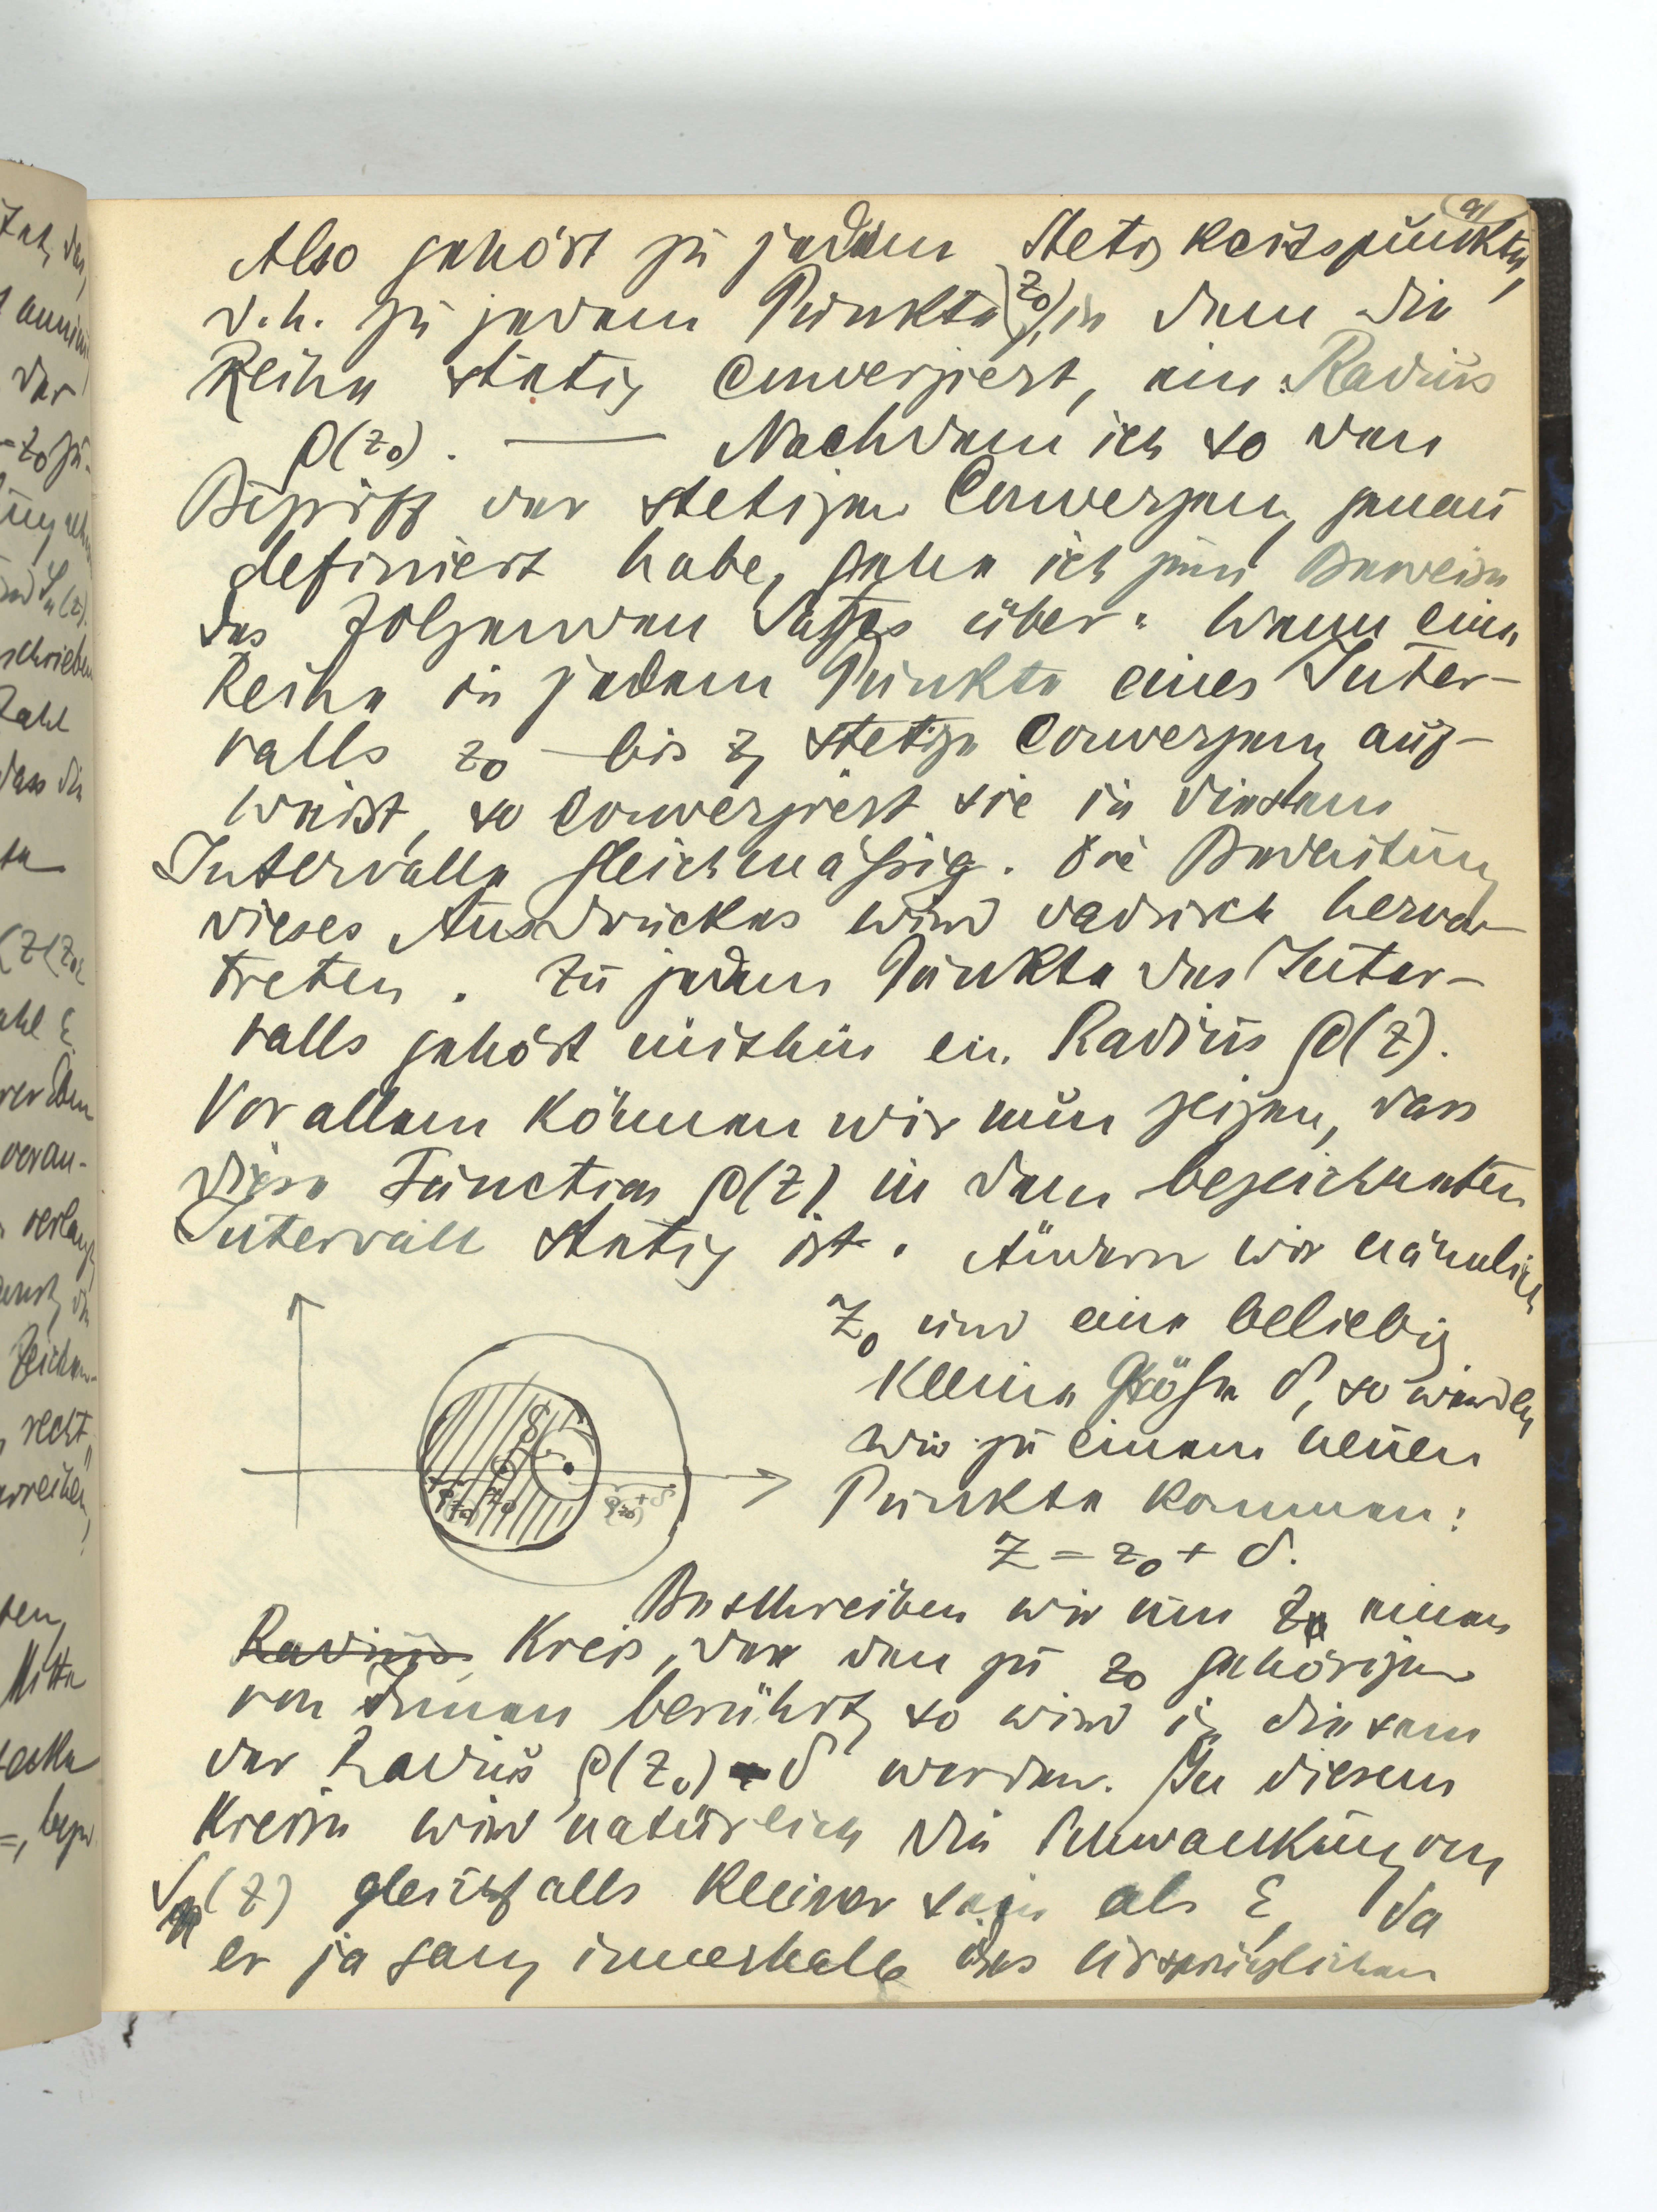 91
Also gehört zu jedem Stetigkeitspunkte,
d.h. zu jedem Punkte (z₀), in dem die
Reihe stetig convergiert, ein Radius
ρ(z₀). — Nachdem ich so den
Begriff der stetigen Convergenz genau
definiert habe, gehe ich zum Beweise
des folgenden Satzes über: Wenn eine
Reihe in jedem Punkte eines Inter-
valls z₀ – bis z₁ stetige Convergenz auf-
weist, so convergiert sie in diesem
Intervalle gleichmäßig. Die Bedeutung
dieses Ausdruckes wird dadurch hervor-
treten. Zu jedem Punkte des Inter-
valls gehört mithin ein Radius ρ(z).
Vor allem können wir nun zeigen, dass
diese Function ρ(z) in dem bezeichneten
Intervall stetig ist. Ändern wir nämlich
z₀ um eine beliebig
kleine Größe δ, so werden
wir zu einem neuen
Punkte kommen:
z = z₀ + δ.
Beschreiben wir um z einen
Radius Kreis, der den zu z₀ gehörigen
von Innen berührt, so wird in diesem
der Radius ρ(z₀) - δ werden. In diesem
Kreise wird natürlich die Schwankung von
Sₙ(z) gleichfalls kleiner sein als ε, da
er ja ganz innerhalb des ursprünglichen